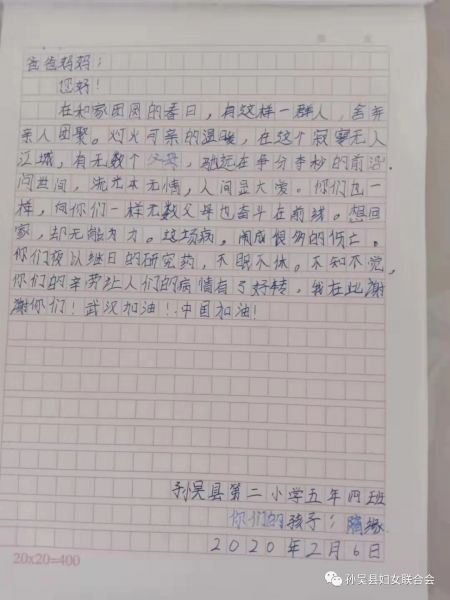 爸爸妈妈：
您好！
在和家团圆的春日，有这样一群人，舍弃
亲人团聚。灯火可亲的温暖，在这个寂寥无人
江城，有无数个父母，融远在争分夺秒的前沿.
问世间，流光本无情，人间显大爱。你们也一
样，向你们一样无数父母也奋斗在前线。想回
家，却无能为力。这场病，闹成恨多的伤亡。
你们夜以继日的研究药，不眠不休。不知不觉，
你们的辛劳让人们的病情有了好转，我在此谢
谢你们！武汉加油！中国加油！
孙吴县第二小学五年四班
你们的孩子：
2020年2月6日
20x20=400
孙吴县妇女联合会